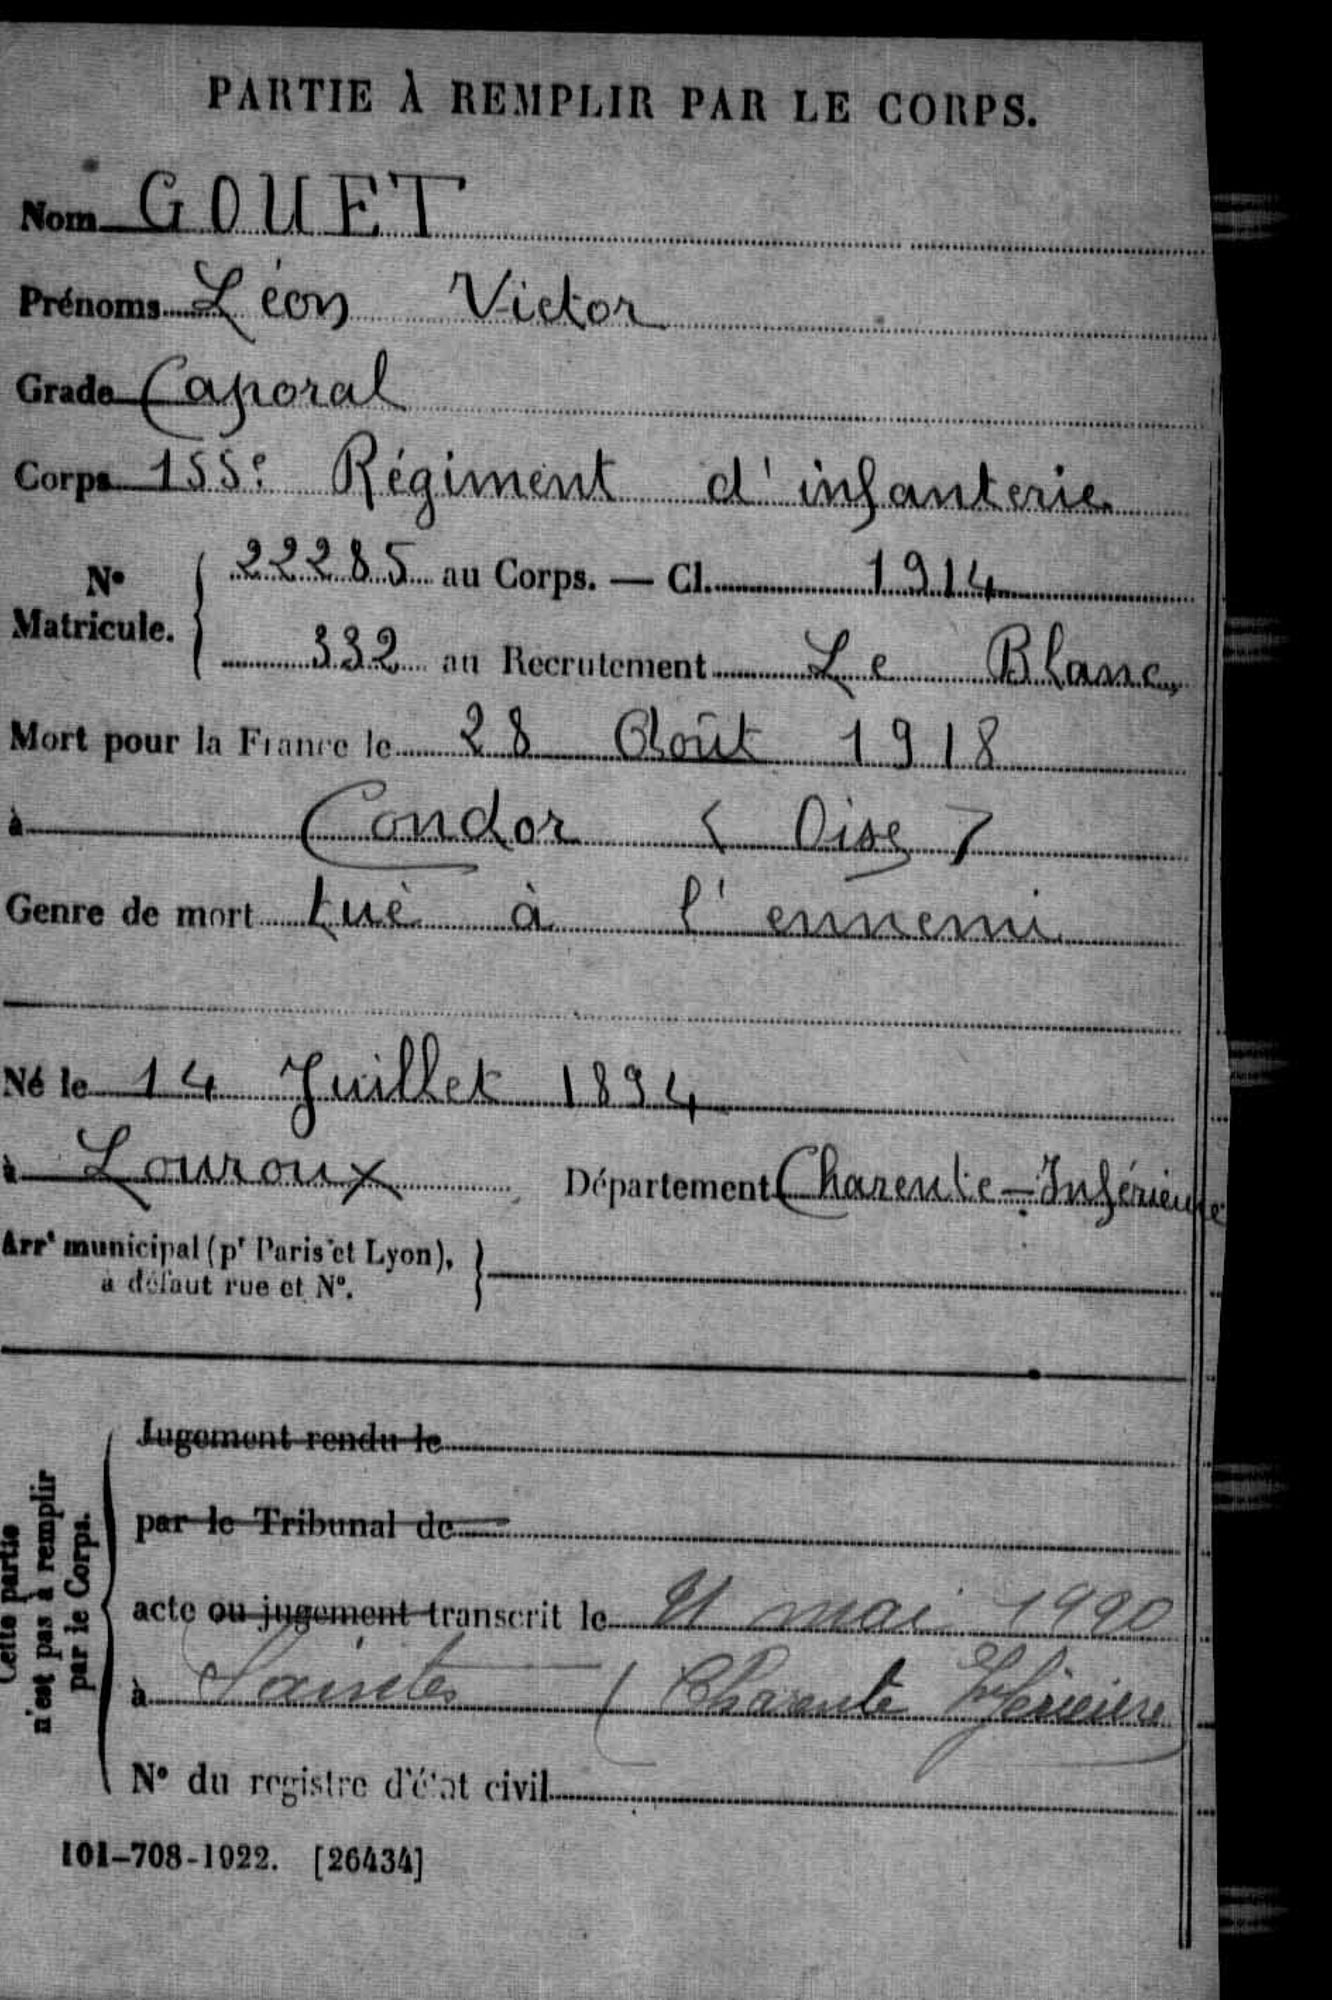 PARTIE À REMPLIR PAR LE CORPS.
Nom GOUET
Prénoms Léon Victor
Grade Caporal
Corps 155e Régiment d'infanterie
No Matricule. { 22285 au Corps. — Cl. 1914
332 au Recrutement Le Blanc
Mort pour la France le 28 Août 1918
à Condor (Oise)
Genre de mort tué à l'ennemi
Né le 14 Juillet 1894
à Louroux Département Charente-Inférieure
Arrt municipal (pr Paris et Lyon),
à défaut rue et No.
Cette partie
n'est pas à remplir
par le Corps.
Jugement rendu le
par le Tribunal de
acte ou jugement transcrit le 21 mai 1920
à Saintes (Charente Inférieure
No du registre d'état civil
101-708-1922. [26434]